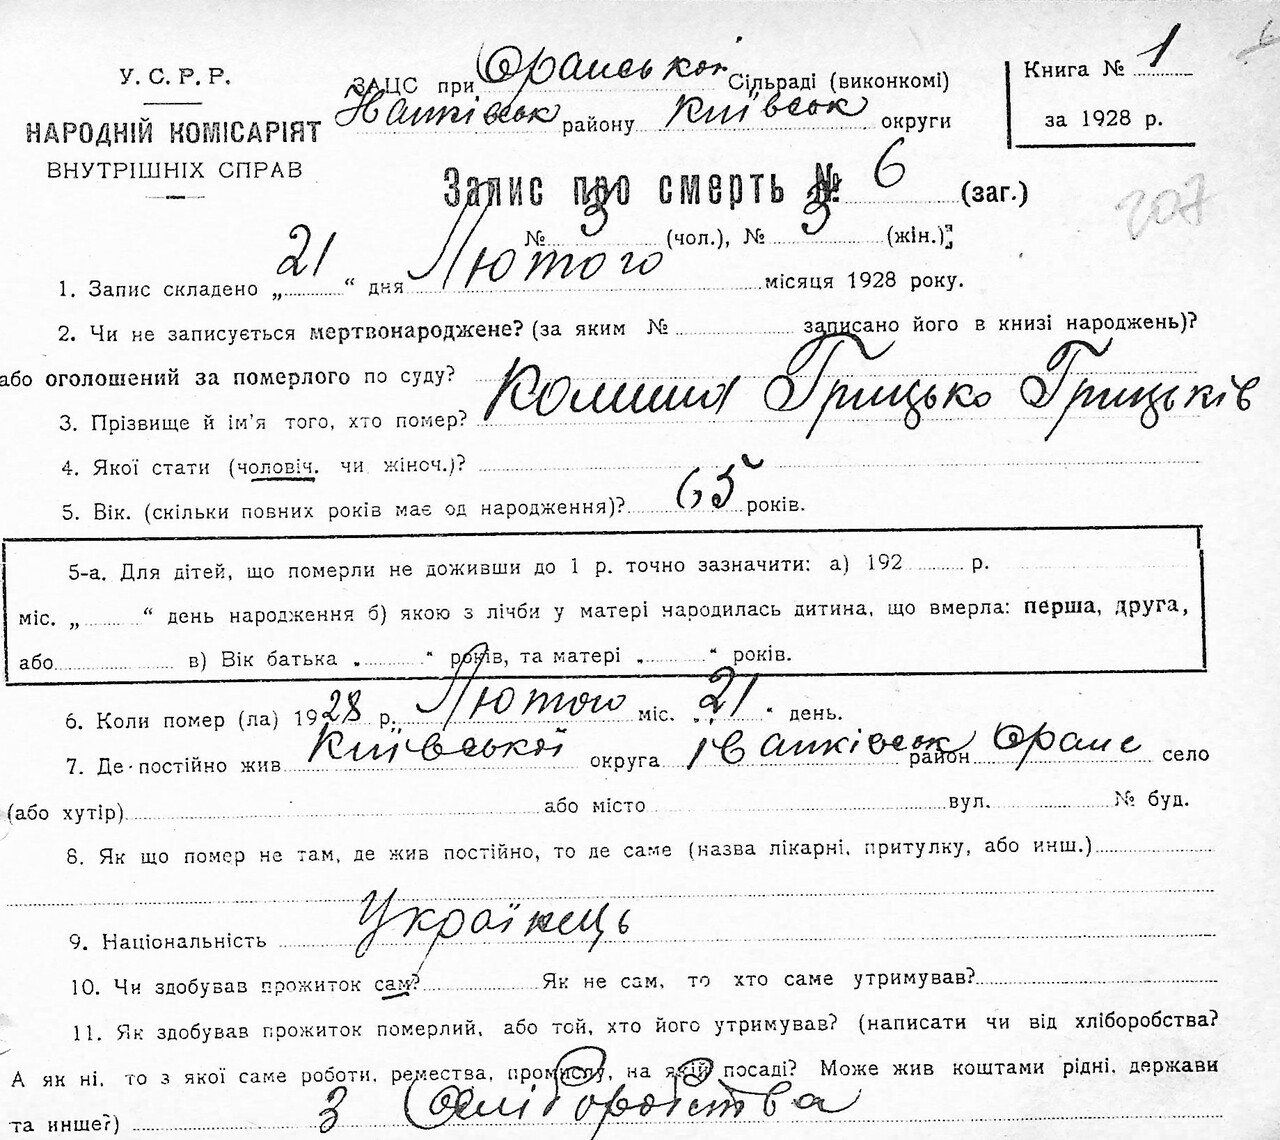 У. С. Р. Р.
НАРОДНІЙ КОМІСАРІЯТ
ВНУТРІШНІХ СПРАВ
ЗАЦС при Оранської Сільраді (виконкомі)
району Київськ округи
Книга № 1
за 1928 р.
Запис про смерть № 6 (заг.)
№ 3 (чол.), № 3 (жін.)
207
1. Запис складено „ 21 “ дня Лютого місяця 1928 року.
2. Чи не записується мертвонароджене? (за яким № записано його в книзі народжень)?
або оголошений за померлого по суду?
3. Прізвище й ім'я того, хто помер? Грицько Грицьків
4. Якої стати (чоловіч. чи жіноч.)?
5. Вік. (скільки повних років має од народження)? 65 років.
5-а. Для дітей, що померли не доживши до 1 р. точно зазначити: а) 192 р.
міс. „ “ день народження б) якою з лічби у матері народилась дитина, що вмерла: перша, друга,
або в) Вік батька „ “ років, та матері „ “ років.
6. Коли помер (ла) 1928 р. Лютого міс. „ 21 “ день.
7. Де постійно жив Київської округа Іванківськ район Оране село
(або хутір) або місто вул. № буд.
8. Як що помер не там, де жив постійно, то де саме (назва лікарні, притулку, або инш.)
9. Національність Українець
10. Чи здобував прожиток сам? Як не сам, то хто саме утримував?
11. Як здобував прожиток померлий, або той, хто його утримував? (написати чи від хліборобства?
А як ні, то з якої саме роботи, ремества, промислу, на якій посаді? Може жив коштами рідні, держави
та инше?) З